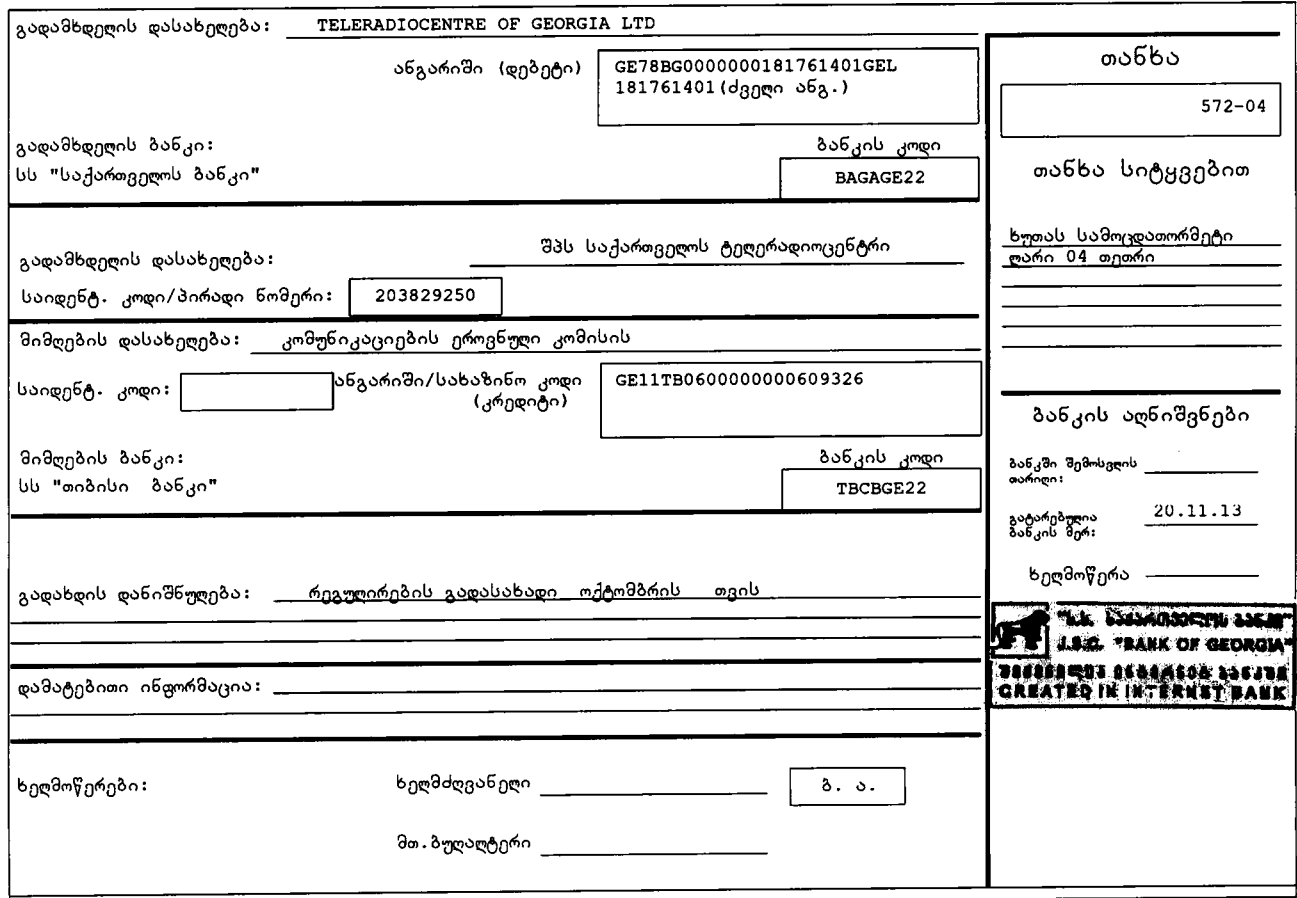 გადამხდელის დასახელება: TELERADIOCENTRE OF GEORGIA LTD
ანგარიში (დებეტი)
GE78BG0000000181761401GEL
181761401(ძველი ანგ.)
გადამხდელის ბანკი:
სს "საქართველოს ბანკი"
ბანკის კოდი
BAGAGE22
გადამხდელის დასახელება: შპს საქართველოს ტელერადიოცენტრი
საიდენტ. კოდი/პირადი ნომერი: 203829250
მიმღების დასახელება: კომუნიკაციების ეროვნული კომისის
საიდენტ. კოდი:
ანგარიში/სახაზინო კოდი
(კრედიტი)
GE11TB0600000000609326
მიმღების ბანკი:
სს "თიბისი ბანკი"
ბანკის კოდი
TBCBGE22
გადახდის დანიშნულება: რეგულირების გადასახადი ოქტომბრის თვის
დამატებითი ინფორმაცია:
ხელმოწერები:
ხელმძღვანელი
ბ. ა.
მთ.ბუღალტერი
თანხა
572-04
თანხა სიტყვებით
ხუთას სამოცდათორმეტი
ლარი 04 თეთრი
ბანკის აღნიშვნები
ბანკში შემოსვლის
თარიღი:
გატარებულია
ბანკის მერ:
20.11.13
ხელმოწერა
"ს.ს. საქართველოს ბანკი"
J.S.C. "BANK OF GEORGIA"
შექმნილია ინტერნეტ ბანკში
CREATED IN INTERNET BANK